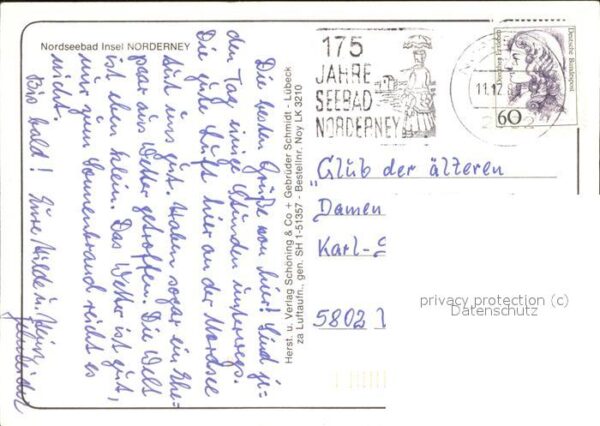 Nordseebad Insel NORDERNEY
Die besten Grüße von hier! Sind je-
den Tag einige Stunden unterwegs.
Die gute Luft hier an der Nordsee
tut uns gut. Haben sogar ein Ehe-
paar aus Wetter getroffen. Die Welt
ist eben klein. Das Wetter ist gut,
nur zum Sonnenbrand reicht es
nicht.
Bis bald! Eure Hilde u. Heinz
Herst. u. Verlag Schöning & Co + Gebrüder Schmidt - Lübeck
za Luftaufn., gen. SH 1-51357 - Bestellnr. Noy LK 3210
175
JAHRE
SEEBAD
NORDERNEY
11.12.8
Deutsche Bundespost
60
"Club der älteren
Damen
Karl-
5802
privacy protection (c)
Datenschutz